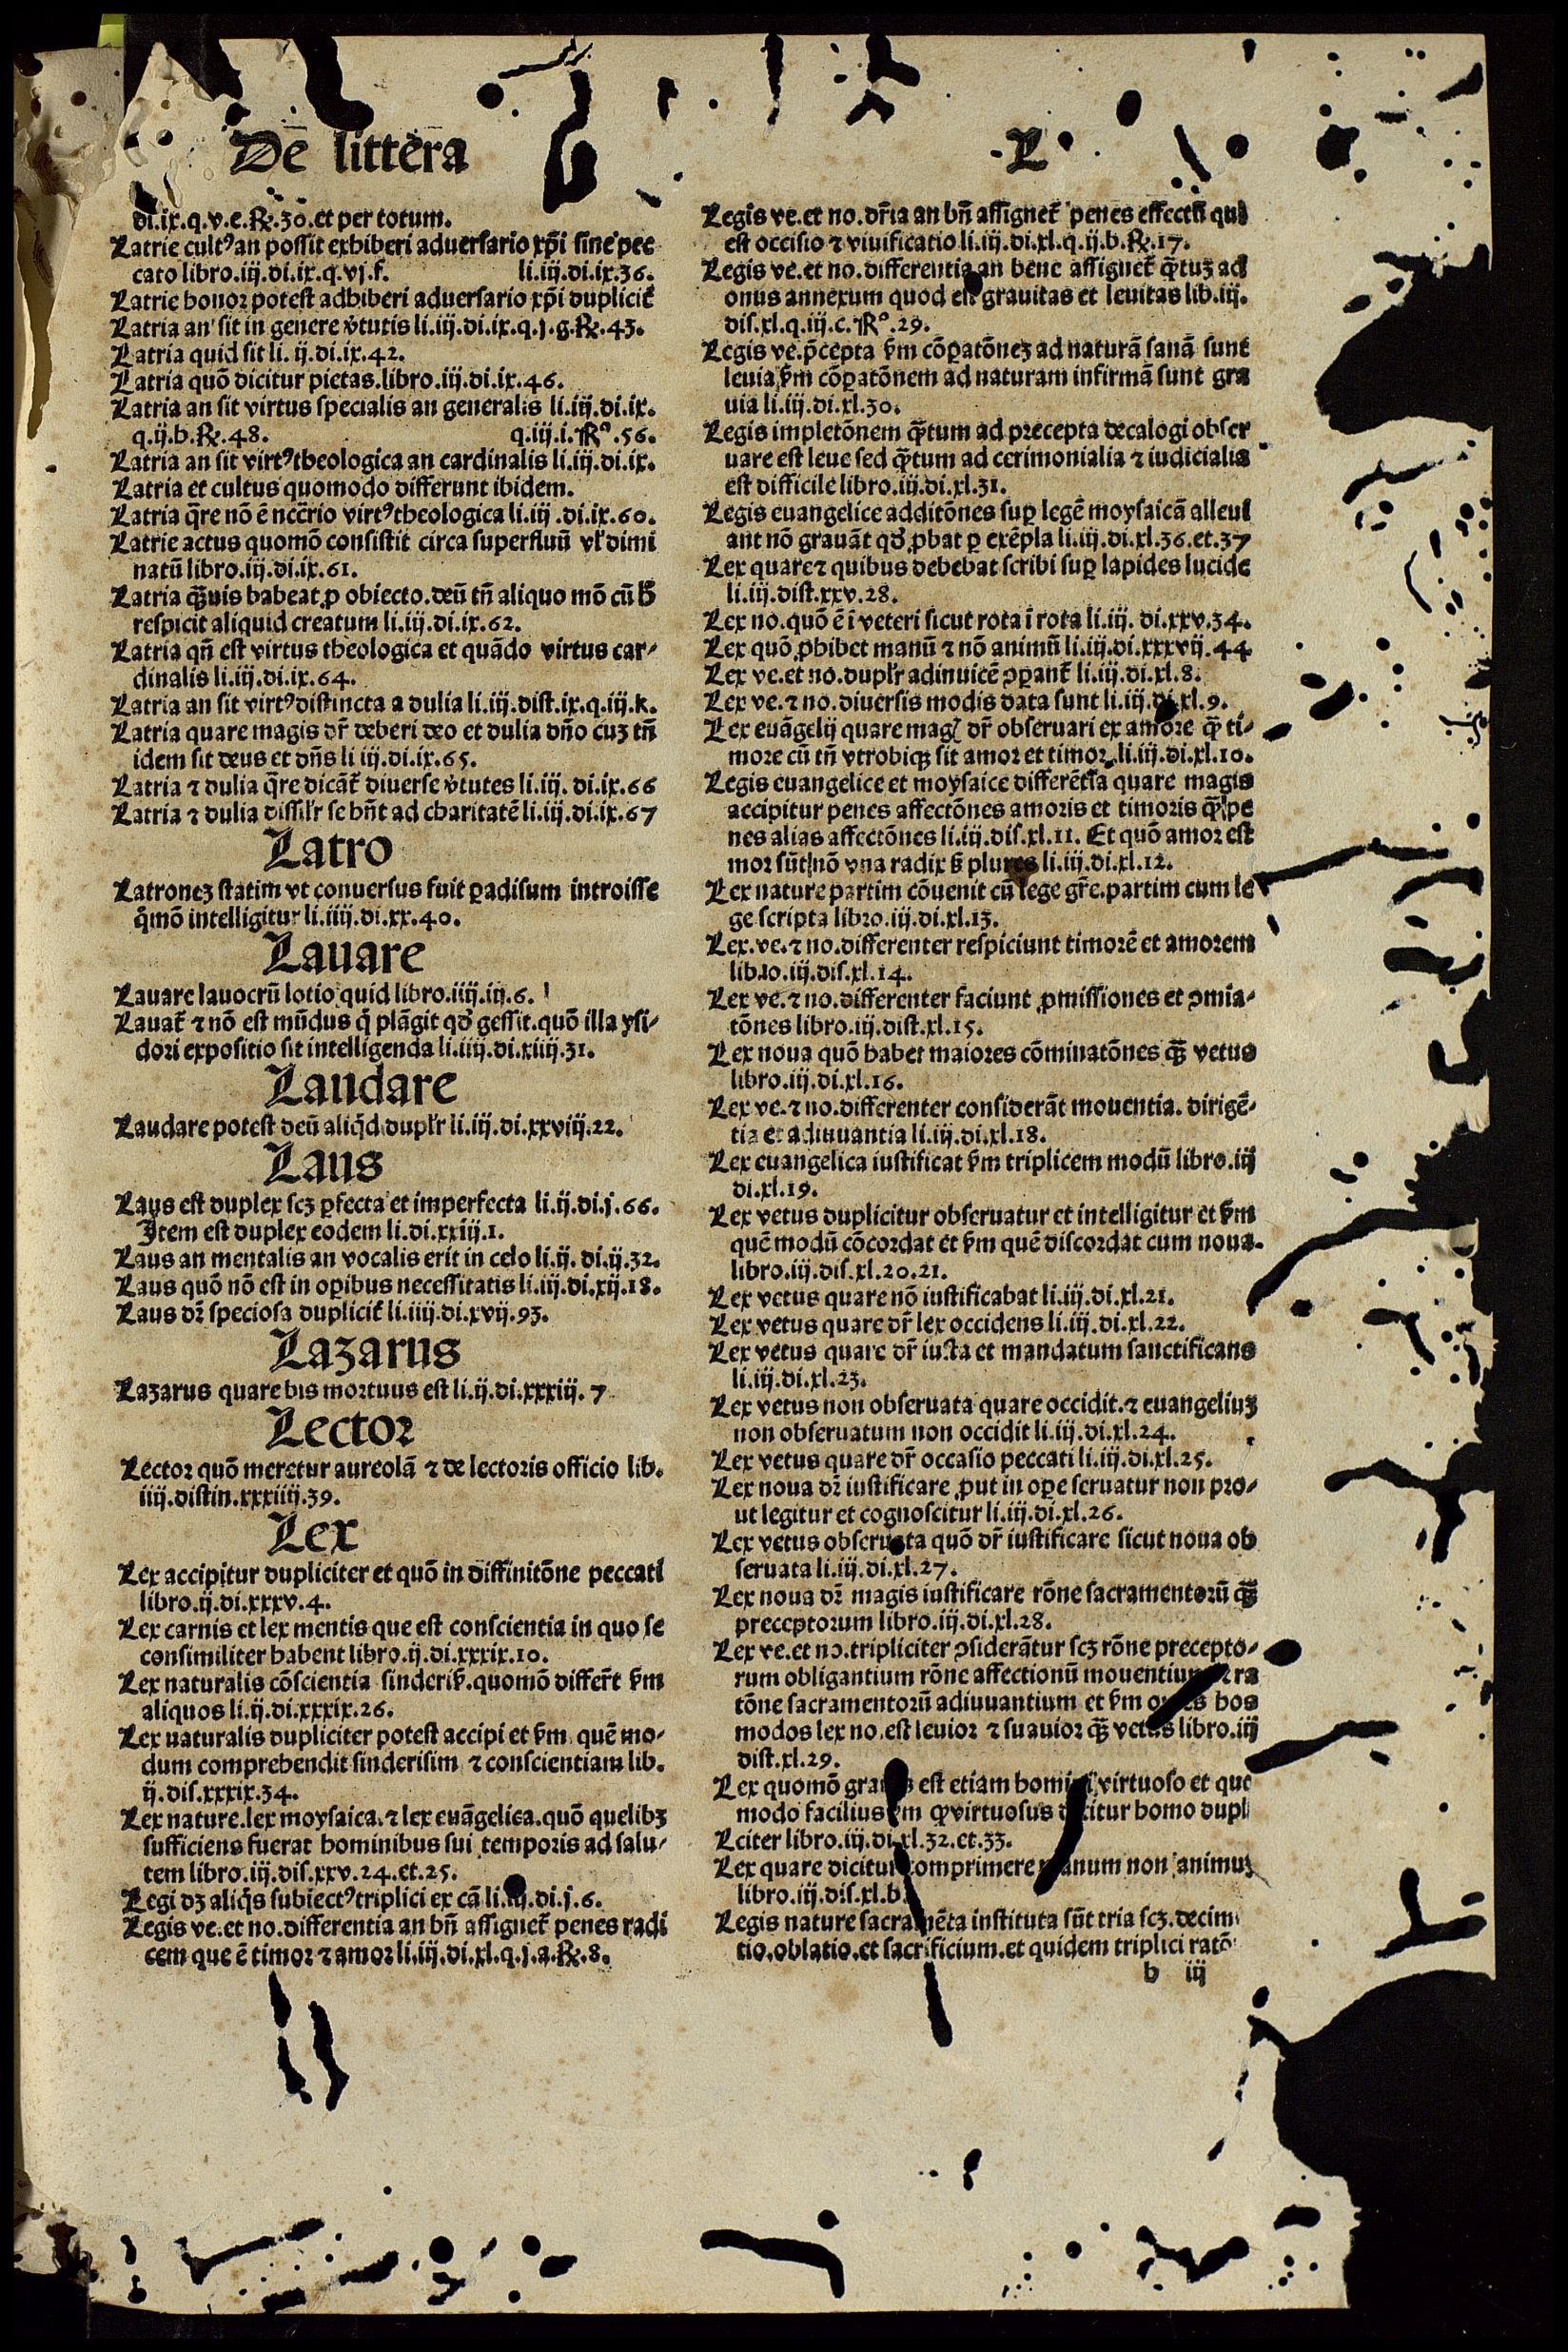 De littera
L
di.ix.q.v.e.℞.30.et per totum.
Latrie cultꝰ an possit exhiberi aduersario xp̄i sine pec
cato libro.iij.di.ix.q.vj.f. li.iij.di.ix.36.
Latrie honor potest adhiberi aduersario xp̄i duplicit̄
Latria an sit in genere v̓tutis li.iij.di.ix.q.j.g.℞.43.
Latria quid sit li. ij.di.ix.42.
Latria quō dicitur pietas.libro.iij.di.ix.46.
Latria an sit virtus specialis an generalis li.iij.di.ix.
q.ij.b.℞.48. q.iij.i.℞º.56.
Latria an sit virtꝰ theologica an cardinalis li.iij.di.ix.
Latria et cultus quomodo differunt ibidem.
Latria q̄re nō ē nc̄c̄rio virtꝰ theologica li.iij .di.ix.60.
Latrie actus quomō consistit circa superfluū vl̓ dimi
natū libro.iij.di.ix.61.
Latria qͣ̄uis habeat ꝓ obiecto.deū tn̄ aliquo mō cū h̓
respicit aliquid creatum li.iij.di.ix.62.
Latria qn̄ est virtus theologica et quādo virtus car⸗
dinalis li.iij.di.ix.64.
Latria an sit virtꝰ distincta a dulia li.iij.dist.ix.q.iij.k.
Latria quare magis dr̄ deberi deo et dulia dn̄o cuʒ tn̄
idem sit deus et dn̄s li iij.di.ix.65.
Latria ⁊ dulia q̄re dicāt̄ diuerse v̓tutes li.iij. di.ix.66
Latria ⁊ dulia dissil̓r se hn̄t ad charitatē li.iij.di.ix.67
Latro
Latroneʒ statim vt conuersus fuit ꝑadisum introisse
q̄mō intelligitur li.iiij.di.xx.40.
Lauare
Lauare lauocrū lotio quid libro.iiij.iij.6.
Lauat̄ ⁊ nō est mūdus q̓ plāgit qd̓ gessit.quō illa ysi⸗
dori expositio sit intelligenda li.iiij.di.xiiij.31.
Laudare
Laudare potest deū aliq̓d dupl̓r li.iij.di.xxviij.22.
Laus
Laus est duplex scʒ ꝑfecta et imperfecta li.ij.di.j.66.
Item est duplex eodem li.di.xxiij.1.
Laus an mentalis an vocalis erit in celo li.ij. di.ij.32.
Laus quō nō est in oꝑibus necessitatis li.iij.di.xij.18.
Laus dr̄ speciosa duplicit̄ li.iiij.di.xvij.93.
Lazarus
Lazarus quare bis mortuus est li.ij.di.xxxiij. 7
Lector
Lector quō meretur aureolā ⁊ de lectoris officio lib.
iiij.distin.xxxiiij.39.
Lex
Lex accipitur dupliciter et quō in diffinitōne peccati
libro.ij.di.xxxv.4.
Lex carnis et lex mentis que est conscientia in quo se
consimiliter habent libro.ij.di.xxxix.10.
Lex naturalis cōscientia sinderi.quomō differt̄ ẜm
aliquos li.ij.di.xxxix.26.
Lex naturalis dupliciter potest accipi et ẜm quē mo⸗
dum comprehendit sinderisim ⁊ conscientiam lib.
ij.dis.xxxix.34.
Lex nature.lex moysaica.⁊ lex euāgelica.quō quelibʒ
sufficiens fuerat hominibus sui temporis ad salu⸗
tem libro.iij.dis.xxv.24.et.25.
Legi dʒ aliq̓s subiectꝰ triplici ex cā li.iij.di.j.6.
Legis ve.et no.differentia an bn̄ assignet̄ penes radi
cem que ē timor ⁊ amor li.iij.di.xl.q.j.a.℞.8.
Legis ve.et no.dr̄ia an bn̄ assignet̄ penes effectū qui
est occisio ⁊ viuificatio li.iij.di.xl.q.ij.b.℞.17.
Legis ve.et no.differentia an bene assignet̄ qͣ̄tuʒ ad
onus annexum quod est grauitas et leuitas lib.iij.
dis.xl.q.iij.c.℞º.29.
Legis ve.p̄cepta ẜm cōꝑatōneʒ ad naturā sanā sunt
leuia ẜm cōꝑatōnem ad naturam infirmā sunt gra
uia li.iij.di.xl.30.
Legis impletōnem qͣ̄tum ad precepta decalogi obser
uare est leue sed qͣ̄tum ad cerimonialia ⁊ iudicialia
est difficile libro.iij.di.xl.31.
Legis euangelice additōnes suꝑ legē moysaicā alleui
ant nō grauāt qd̓ ꝓbat ꝑ exēpla li.iij.di.xl.36.et.37
Lex quare ⁊ quibus debebat scribi suꝑ lapides lucide
li.iij.dist.xxv.28.
Lex no.quō ē ī veteri sicut rota ī rota li.iij. di.xxv.34.
Lex quō ꝓhibet manū ⁊ nō animū li.iij.di.xxxvij.44
Lex ve.et no.dupl̓r adinuicē ꝯꝑant̄ li.iij.di.xl.8.
Lex ve.⁊ no.diuersis modis data sunt li.iij.di.xl.9.
Lex euāgelij quare magꝭ dr̄ obseruari ex amore qͣ̄ ti⸗
more cū tn̄ vtrobiqʒ sit amor et timor.li.iij.di.xl.10.
Legis euangelice et moysaice differētia quare magis
accipitur penes affectōnes amoris et timoris qͣ̄ pe
nes alias affectōnes li.iij.dis.xl.11. Et quō amor est
mor sūt nō vna radix ẜ plures li.iij.di.xl.12.
Lex nature partim cōuenit cū lege gr̄e.partim cum le
ge scripta libro.iij.di.xl.13.
Lex.ve.⁊ no.differenter respiciunt timorē et amorem
libro.iij.dis.xl.14.
Lex ve.⁊ no.differenter faciunt ꝓmissiones et ꝯmia⸗
tōnes libro.iij.dist.xl.15.
Lex noua quō habet maiores cōminatōnes qͣ̄ vetus
libro.iij.di.xl.16.
Lex ve.⁊ no.differenter considerāt mouentia. dirigē⸗
tia et adiuuantia li.iij.di.xl.18.
Lex euangelica iustificat ẜm triplicem modū libro.iij
di.xl.19.
Lex vetus duplicitur obseruatur et intelligitur et ẜm
quē modū cōcordat et ẜm quē discordat cum noua.
libro.iij.dis.xl.20.21.
Lex vetus quare nō iustificabat li.iij.di.xl.21.
Lex vetus quare dr̄ lex occidens li.iij.di.xl.22.
Lex vetus quare dr̄ iusta et mandatum sanctificans
li.iij.di.xl.23.
Lex vetus non obseruata quare occidit.⁊ euangeliuʒ
non obseruatum non occidit li.iij.di.xl.24.
Lex vetus quare dr̄ occasio peccati li.iij.di.xl.25.
Lex noua dr̄ iustificare ꝓut in oꝑe seruatur non pro⸗
ut legitur et cognoscitur li.iij.di.xl.26.
Lex vetus obseruata quō dr̄ iustificare sicut noua ob
seruata li.iij.di.xl.27.
Lex noua dr̄ magis iustificare rōne sacramentorū qͣ̄
preceptorum libro.iij.di.xl.28.
Lex ve.et no.tripliciter ꝯsiderātur scʒ rōne precepto⸗
rum obligantium rōne affectionū mouentium ⁊ ra
tōne sacramentorū adiuuantium et ẜm hos
modos lex no.est leuior ⁊ suauior qͣ̄ vetus libro.iij
dist.xl.29.
Lex quomō grauis est etiam homini virtuoso et quo
modo facilius ẜm ꝙ virtuosus dicitur homo dupl
Lciter libro.iij.di.xl.32.et.33.
Lex quare dicitur comprimere manum non animuʒ
libro.iij.dis.xl.b.
Legis nature sacramēta instituta sūt tria scʒ.decim
tio.oblatio.et sacrificium.et quidem triplici ratō
b iij